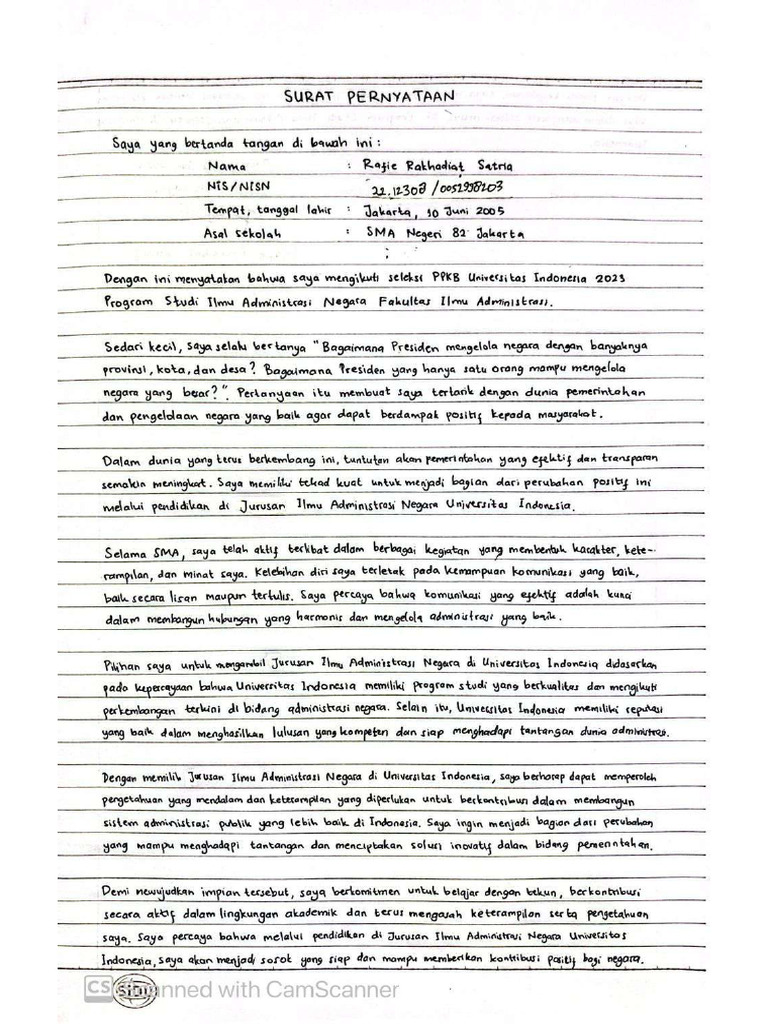 SURAT PERNYATAAN
Saya yang bertanda tangan di bawah ini :
Nama : Rafie Rakhadiat Satria
NIS/NISN 22.12308 /0052998203
Tempat, tanggal lahir : Jakarta, 10 Juni 2005
Asal sekolah : SMA Negeri 82 Jakarta
:
Dengan ini menyatakan bahwa saya mengikuti seleksi PPKB Universitas Indonesia 2023
Program Studi Ilmu Administrasi Negara Fakultas Ilmu Administrasi.
Sedari kecil, saya selalu bertanya "Bagaimana Presiden mengelola negara dengan banyaknya
provinsi, kota, dan desa? Bagaimana Presiden yang hanya satu orang mampu mengelola
negara yang besar?". Pertanyaan itu membuat saya tertarik dengan dunia pemerintahan
dan pengelolaan negara yang baik agar dapat berdampak positif kepada masyarakat.
Dalam dunia yang terus berkembang ini, tuntutan akan pemerintahan yang efektif dan transparan
semakin meningkat. Saya memiliki tekad kuat untuk menjadi bagian dari perubahan positif ini
melalui pendidikan di Jurusan Ilmu Administrasi Negara Universitas Indonesia.
Selama SMA, saya telah aktif terlibat dalam berbagai kegiatan yang membentuk karakter, kete-
rampilan, dan minat saya. Kelebihan diri saya terletak pada kemampuan komunikasi yang baik,
baik secara lisan maupun tertulis. Saya percaya bahwa komunikasi yang efektif adalah kunci
dalam membangun hubungan yang harmonis dan mengelola administrasi yang baik.
Pilihan saya untuk mengambil Jurusan Ilmu Administrasi Negara di Universitas Indonesia didasarkan
pada kepercayaan bahwa Universitas Indonesia memiliki program studi yang berkualitas dan mengikuti
perkembangan terkini di bidang administrasi negara. Selain itu, Universitas Indonesia memiliki reputasi
yang baik dalam menghasilkan lulusan yang kompeten dan siap menghadapi tantangan dunia administrasi.
Dengan memilih Jurusan Ilmu Administrasi Negara di Universitas Indonesia, saya berharap dapat memperoleh
pengetahuan yang mendalam dan keterampilan yang diperlukan untuk berkontribusi dalam membangun
sistem administrasi publik yang lebih baik di Indonesia. Saya ingin menjadi bagian dari perubahan
yang mampu menghadapi tantangan dan menciptakan solusi inovatif dalam bidang pemerintahan.
Demi mewujudkan impian tersebut, saya berkomitmen untuk belajar dengan tekun, berkontribusi
secara aktif dalam lingkungan akademik dan terus mengasah keterampilan serta pengetahuan
saya. Saya percaya bahwa melalui pendidikan di Jurusan Ilmu Administrasi Negara Universitas
Indonesia, saya akan menjadi sosok yang siap dan mampu memberikan kontribusi positif bagi negara.
CS Scanned with CamScanner